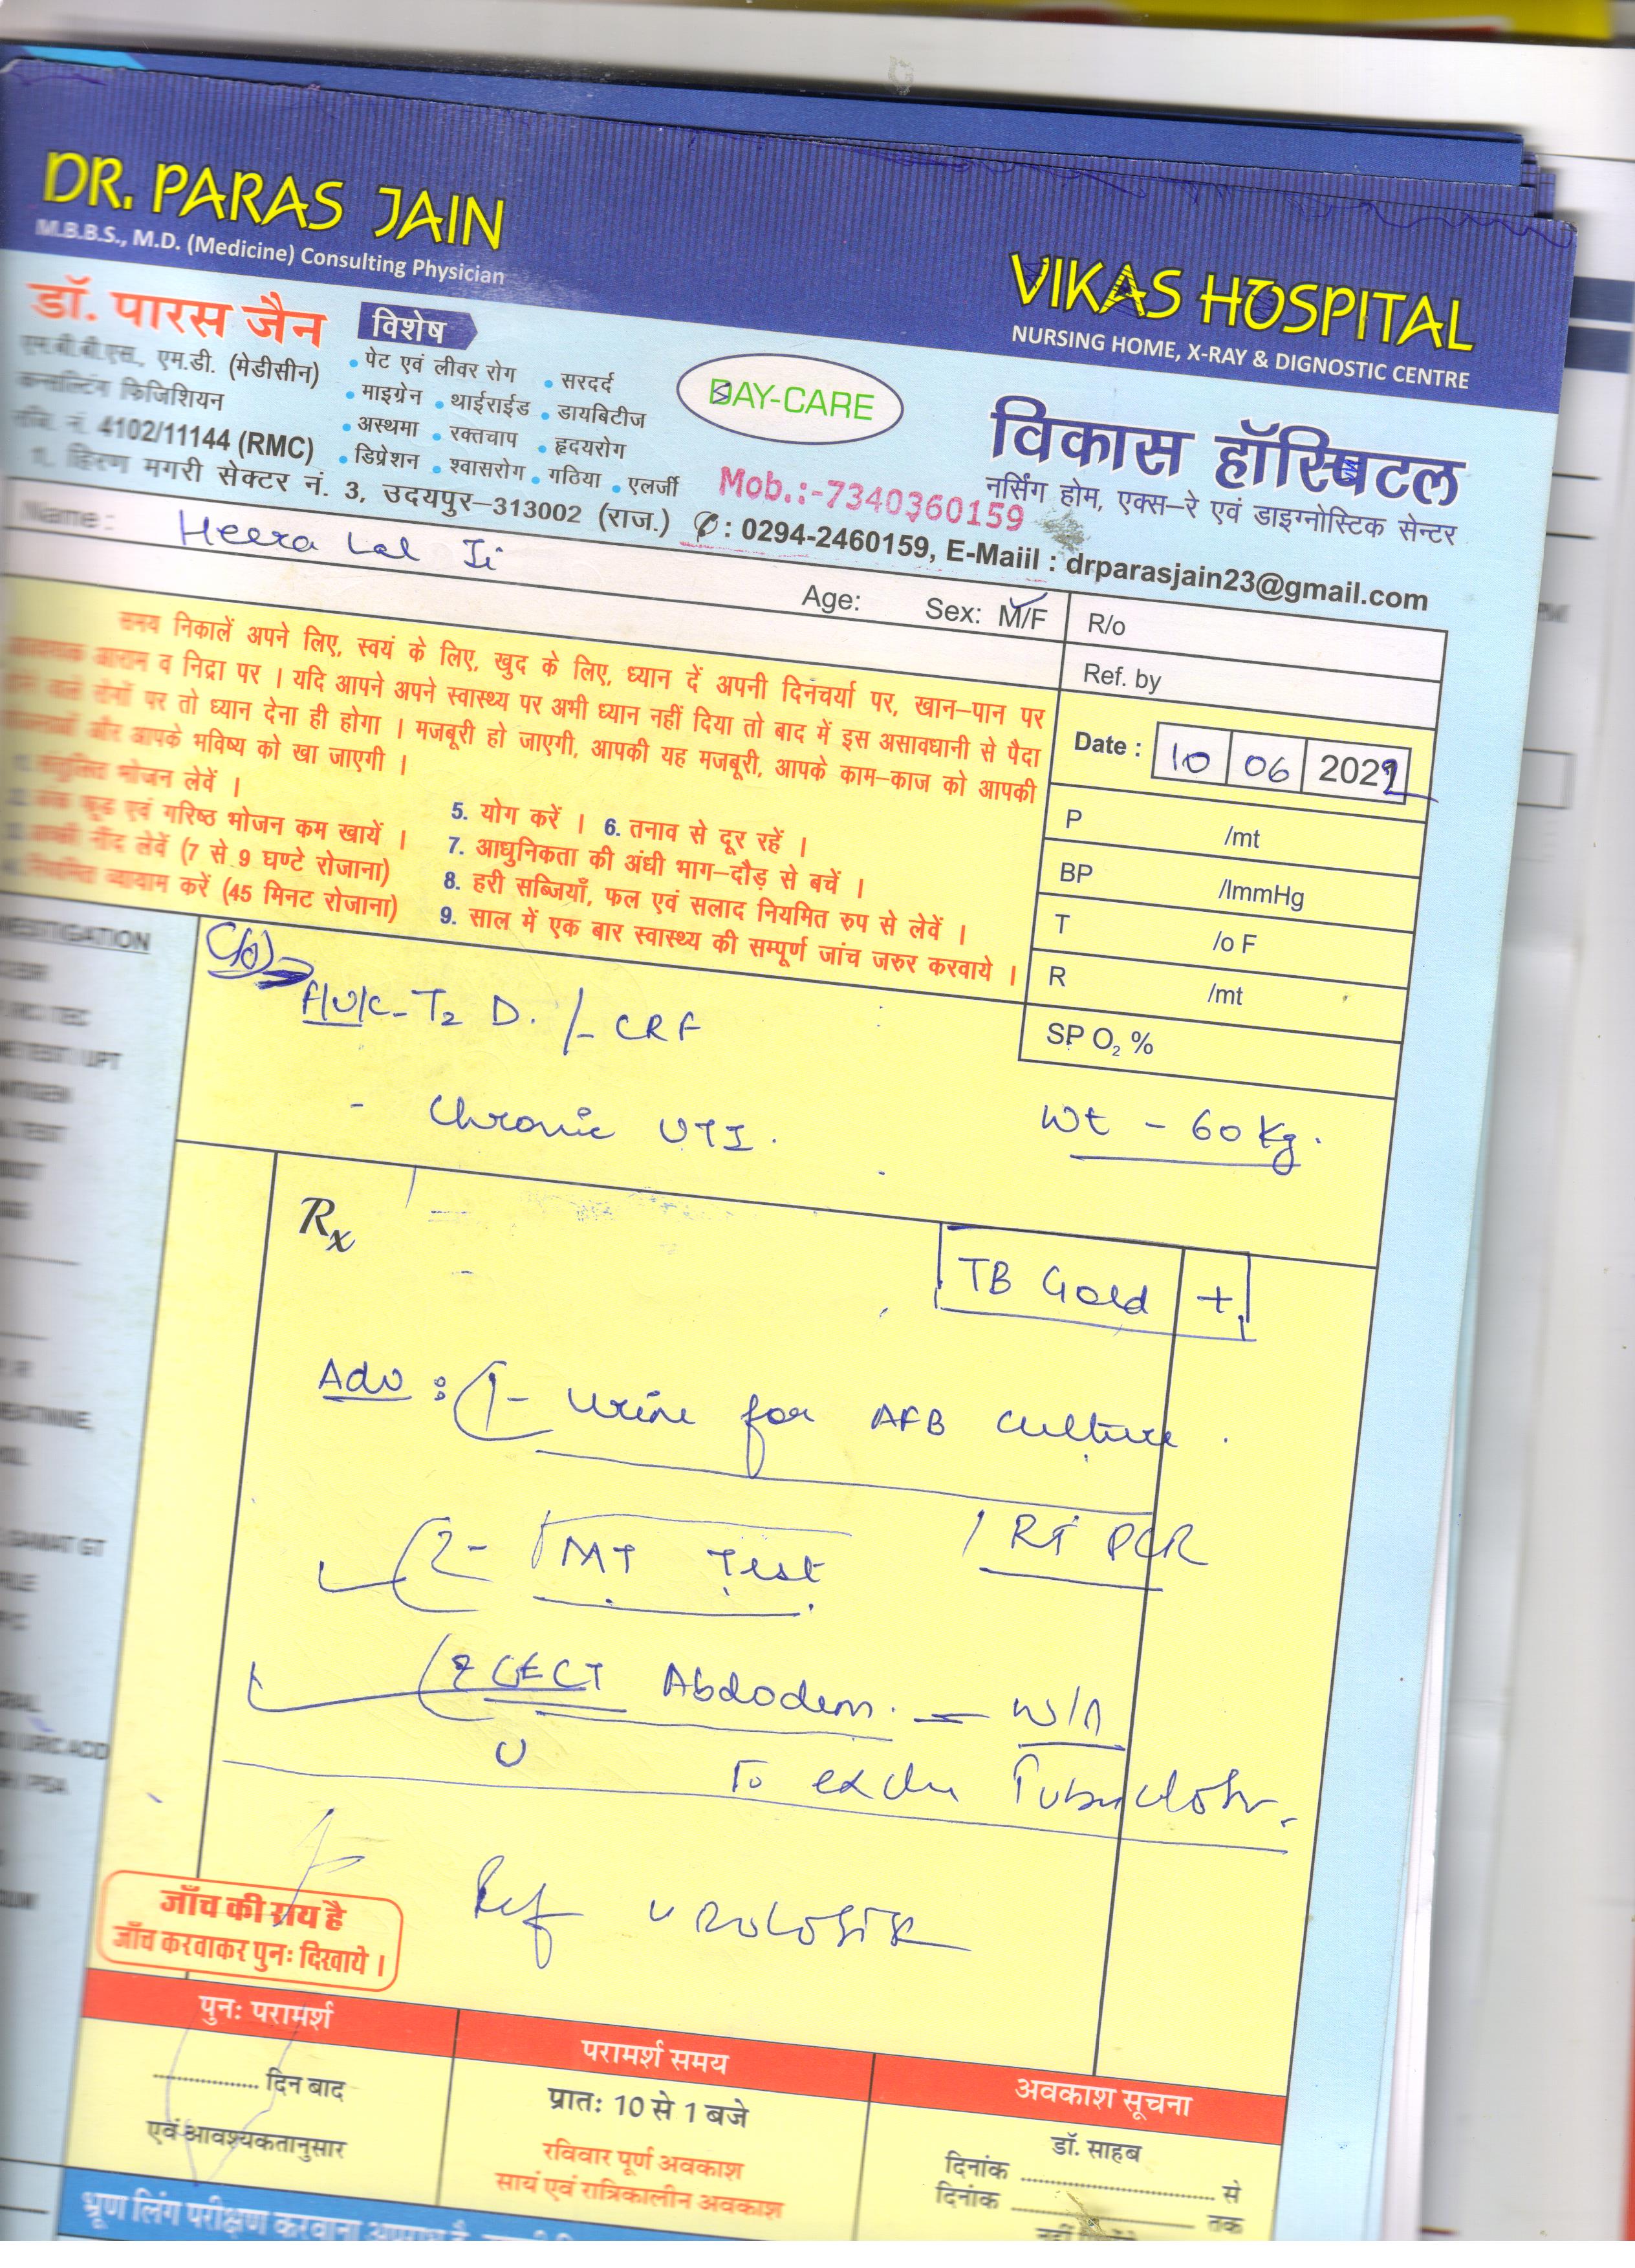 DR. PARAS JAIN
M.B.B.S., M.D. (Medicine) Consulting Physician
VIKAS HOSPITAL
NURSING HOME, X-RAY & DIGNOSTIC CENTRE
डॉ. पारस जैन
एम.बी.बी.एस., एम.डी. (मेडीसीन)
कन्सल्टिंग फिजिशियन
रजि. नं. 4102/11144 (RMC)
विशेष
• पेट एवं लीवर रोग • सरदर्द
• माइग्रेन • थाईराईड • डायबिटीज
• अस्थमा • रक्तचाप • हृदयरोग
• डिप्रेशन • श्वासरोग • गठिया • एलर्जी
DAY-CARE
विकास हॉस्पिटल
नर्सिंग होम, एक्स-रे एवं डाइग्नोस्टिक सेन्टर
Mob.:-7340360159
हिरण मगरी सेक्टर नं. 3, उदयपुर-313002 (राज.) ✆: 0294-2460159, E-Maiil : drparasjain23@gmail.com
Name: Heera Lal Ji
Age: Sex: M/F
R/o
Ref. by
Date : 10 06 2022
P /mt
BP /ImmHg
T /o F
R /mt
SP O₂ %
समय निकालें अपने लिए, स्वयं के लिए, खुद के लिए, ध्यान दें अपनी दिनचर्या पर, खान-पान पर
आराम व निद्रा पर । यदि आपने अपने स्वास्थ्य पर अभी ध्यान नहीं दिया तो बाद में इस असावधानी से पैदा
होने वाले रोगों पर तो ध्यान देना ही होगा । मजबूरी हो जाएगी, आपकी यह मजबूरी, आपके काम-काज को आपकी
और आपके भविष्य को खा जाएगी ।
1. संतुलित भोजन लेवें ।
फूड एवं गरिष्ठ भोजन कम खायें ।
3. अच्छी नींद लेवें (7 से 9 घण्टे रोजाना)
4. नियमित व्यायाम करें (45 मिनट रोजाना)
5. योग करें । 6. तनाव से दूर रहें ।
7. आधुनिकता की अंधी भाग-दौड़ से बचें ।
8. हरी सब्जियाँ, फल एवं सलाद नियमित रुप से लेवें ।
9. साल में एक बार स्वास्थ्य की सम्पूर्ण जांच जरुर करवाये ।
INVESTIGATION
C/o
F/U/C- T2 D. /- CRF
- Chronic UTI.
Wt - 60 Kg.
Rx
TB Gold +
Adv : 1- Urine for AFB culture.
2- MT Test / RT PCR
CECT Abdodem. = W/A
To exclu
Ref
जाँच की राय है
जाँच करवाकर पुनः दिखाये ।
पुनः परामर्श
................. दिन बाद
एवं आवश्यकतानुसार
परामर्श समय
प्रातः 10 से 1 बजे
रविवार पूर्ण अवकाश
सायं एवं रात्रिकालीन अवकाश
अवकाश सूचना
डॉ. साहब
दिनांक ................................ से
दिनांक .............................. तक
भ्रूण लिंग परीक्षण करवाना